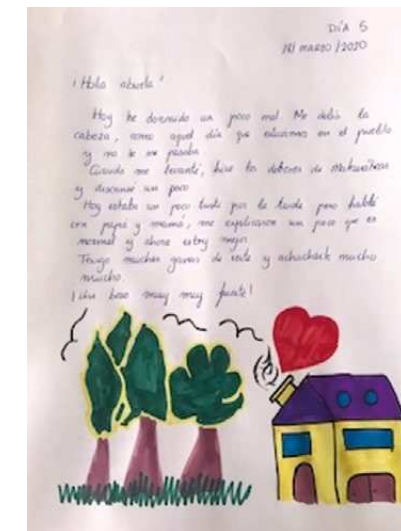 DÍA 5
18/ MARZO /2020
¡Hola abuela!
Hoy he dormido un poco mal. Me dolía la
cabeza, como aquel día que estuvimos en el pueblo
y no se me pasaba.
Cuando me levanté, hice los deberes de Matemáticas
y descansé un poco
Hoy estaba un poco por la tarde pero hablé
con papá y mamá, me explicaron un poco que es
normal y ahora estoy mejor.
Tengo muchas ganas de verte y achucharte mucho
mucho.
¡Un beso muy muy fuerte!